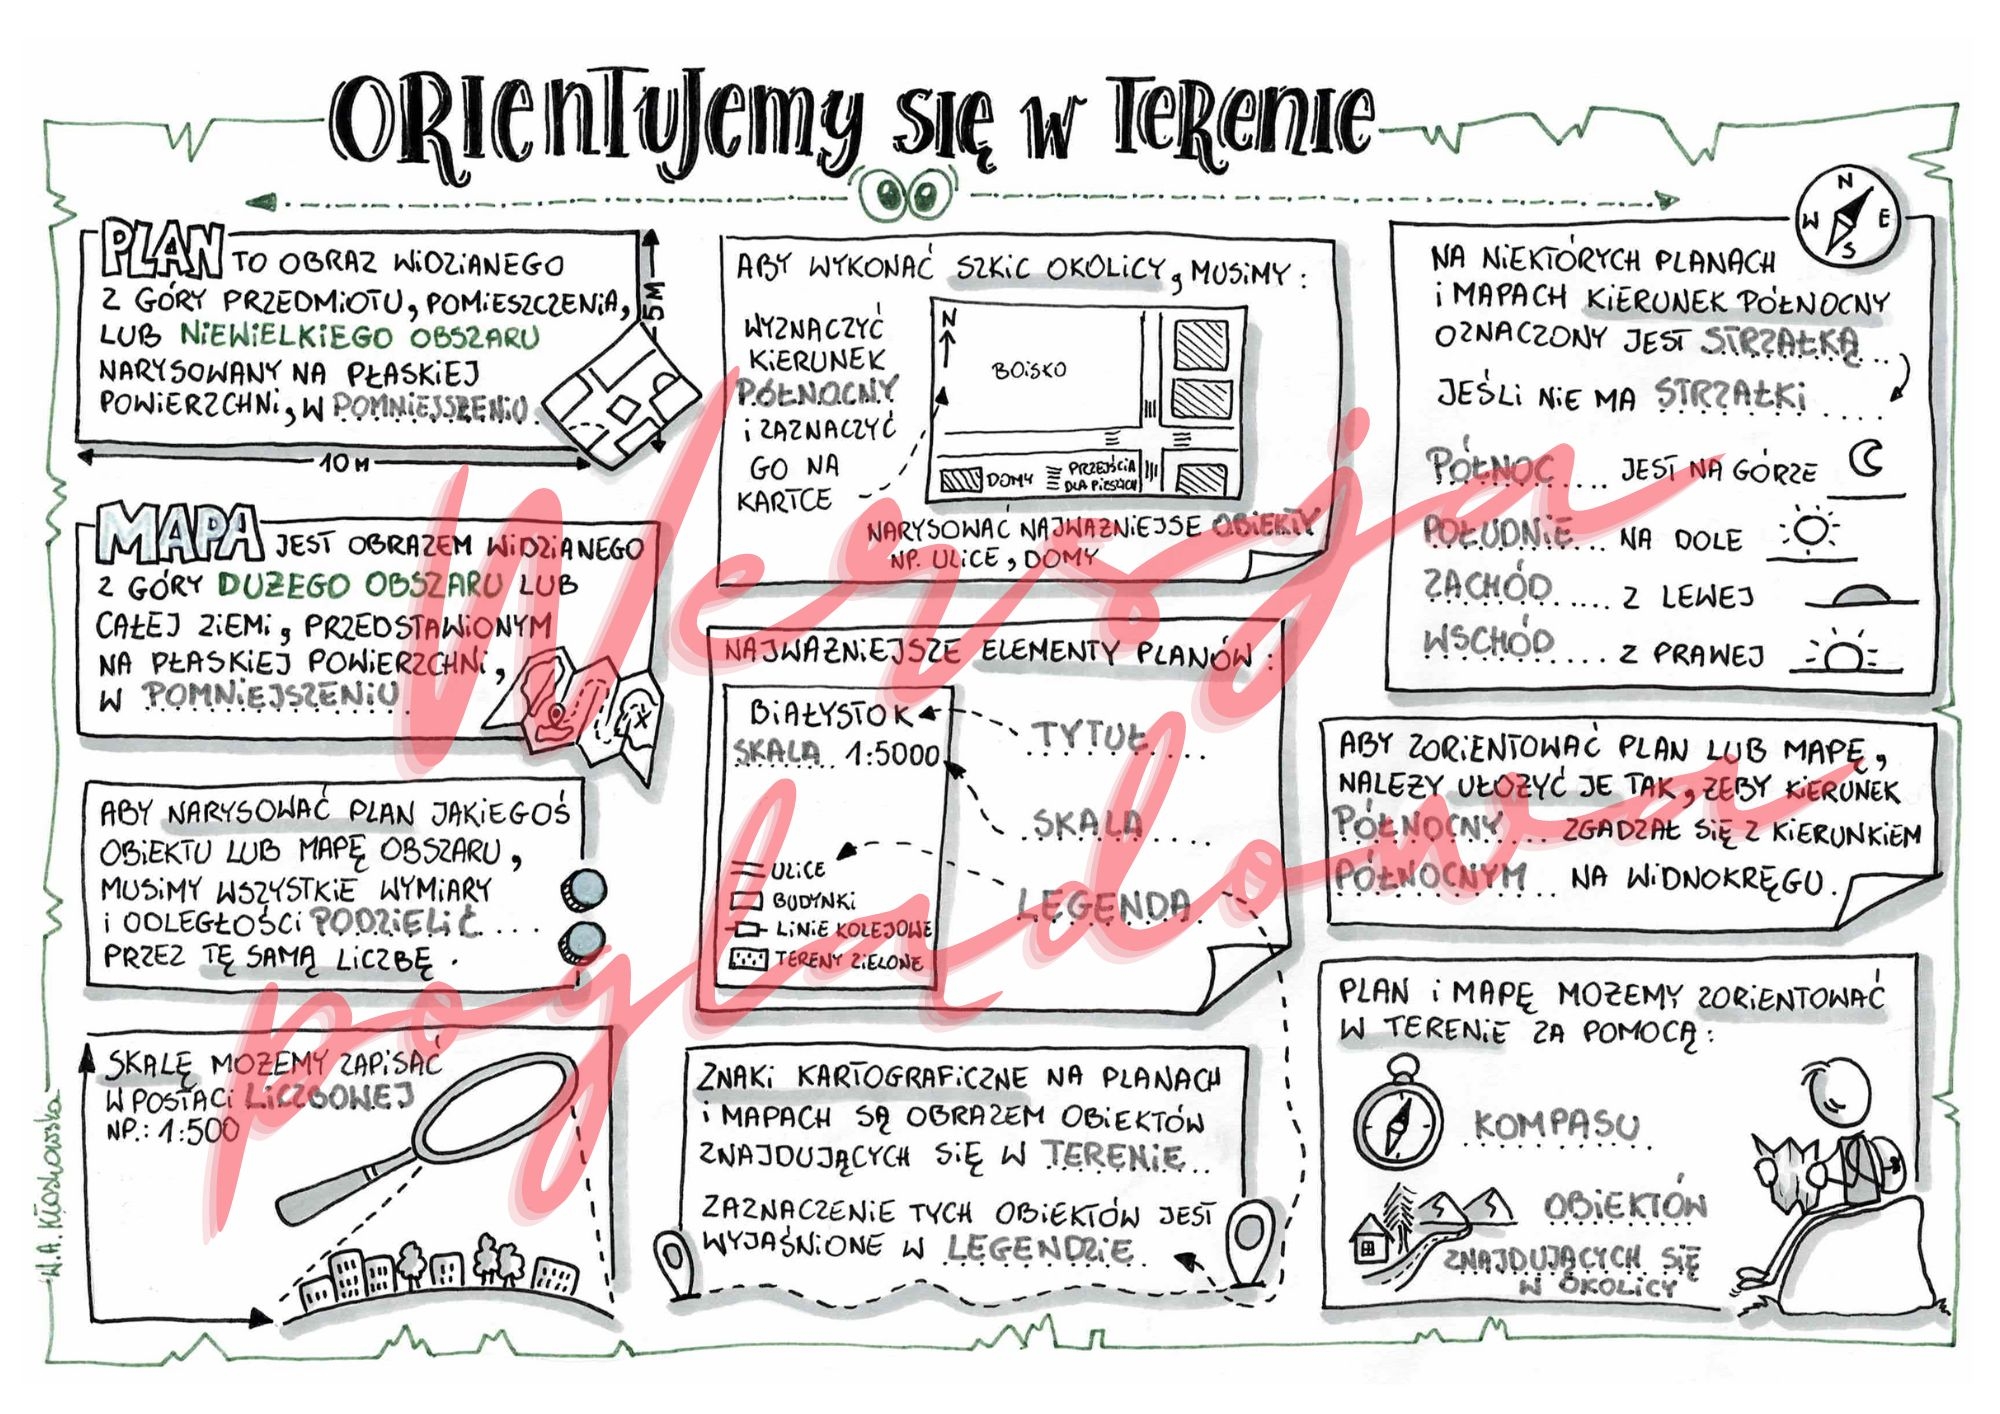 ORIENTUJEMY SIĘ W TERENIE
PLAN TO OBRAZ WIDZIANEGO
Z GÓRY PRZEDMIOTU, POMIESZCZENIA,
LUB NIEWIELKIEGO OBSZARU
NARYSOWANY NA PŁASKIEJ
POWIERZCHNI, W POMNIEJSZENIU
5M
10 M
MAPA JEST OBRAZEM WIDZIANEGO
Z GÓRY DUŻEGO OBSZARU LUB
CAŁEJ ZIEMI, PRZEDSTAWIONYM
NA PŁASKIEJ POWIERZCHNI,
W POMNIEJSZENIU
ABY NARYSOWAĆ PLAN JAKIEGOŚ
OBIEKTU LUB MAPĘ OBSZARU,
MUSIMY WSZYSTKIE WYMIARY
I ODLEGŁOŚCI PODZIELIĆ....
PRZEZ TĘ SAMĄ LICZBĘ.
SKALĘ MOŻEMY ZAPISAĆ
W POSTACI LICZBOWEJ
NP.: 1:500
W.A. Kłoskowska
ABY WYKONAĆ SZKIC OKOLICY, MUSIMY:
WYZNACZYĆ
KIERUNEK
PÓŁNOCNY
I ZAZNACZYĆ
GO NA
KARTCE
N
BOISKO
DOMY
PRZEJŚCIA
DLA PIESZYCH
NARYSOWAĆ NAJWAŻNIEJSZE OBIEKTY
NP. ULICE, DOMY
NAJWAŻNIEJSZE ELEMENTY PLANÓW:
BIAŁYSTOK
SKALA.. 1:5000
TYTUŁ....
SKALA....
LEGENDA
ULICE
BUDYNKI
LINIE KOLEJOWE
TERENY ZIELONE
ZNAKI KARTOGRAFICZNE NA PLANACH
I MAPACH SĄ OBRAZEM OBIEKTÓW
ZNAJDUJĄCYCH SIĘ W TERENIE..
ZAZNACZENIE TYCH OBIEKTÓW JEST
WYJAŚNIONE W LEGENDZIE.
N
W E
S
NA NIEKTÓRYCH PLANACH
I MAPACH KIERUNEK PÓŁNOCNY
OZNACZONY JEST STRZAŁKĄ...
JEŚLI NIE MA STRZAŁKI ....
PÓŁNOC.... JEST NA GÓRZE
POŁUDNIE... NA DOLE
ZACHÓD ..... Z LEWEJ
WSCHÓD ..... Z PRAWEJ
ABY ZORIENTOWAĆ PLAN LUB MAPĘ,
NALEŻY UŁOŻYĆ JE TAK, ŻEBY KIERUNEK
PÓŁNOCNY.... ZGADZAŁ SIĘ Z KIERUNKIEM
PÓŁNOCNYM.. NA WIDNOKRĘGU.
PLAN I MAPĘ MOŻEMY ZORIENTOWAĆ
W TERENIE ZA POMOCĄ:
KOMPASU
OBIEKTÓW
ZNAJDUJĄCYCH SIĘ
W OKOLICY
Wersja
poglądowa